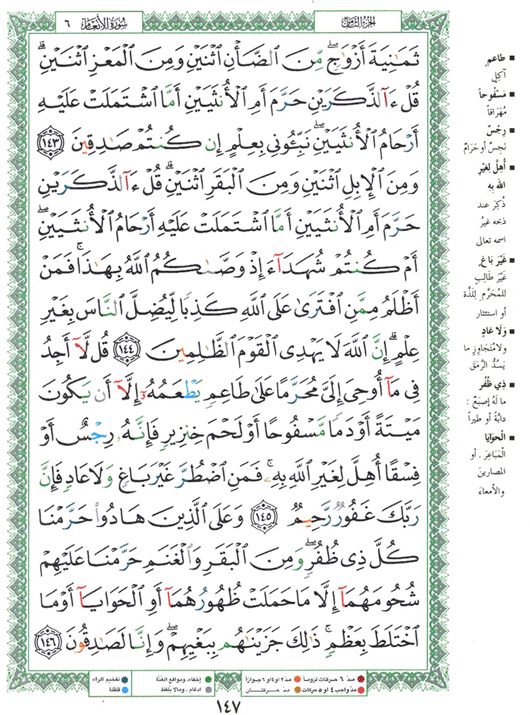 سورة الأنعام ٦
الجزء الثامن
ثَمَٰنِيَةَ أَزْوَٰجٍ ۖ مِّنَ ٱلضَّأْنِ ٱثْنَيْنِ وَمِنَ ٱلْمَعْزِ ٱثْنَيْنِ ۗ
قُلْ ءَآلذَّكَرَيْنِ حَرَّمَ أَمِ ٱلْأُنثَيَيْنِ أَمَّا ٱشْتَمَلَتْ عَلَيْهِ
أَرْحَامُ ٱلْأُنثَيَيْنِ ۖ نَبِّـُٔونِى بِعِلْمٍ إِن كُنتُمْ صَٰدِقِينَ ١٤٣
وَمِنَ ٱلْإِبِلِ ٱثْنَيْنِ وَمِنَ ٱلْبَقَرِ ٱثْنَيْنِ ۗ قُلْ ءَآلذَّكَرَيْنِ
حَرَّمَ أَمِ ٱلْأُنثَيَيْنِ أَمَّا ٱشْتَمَلَتْ عَلَيْهِ أَرْحَامُ ٱلْأُنثَيَيْنِ ۖ
أَمْ كُنتُمْ شُهَدَآءَ إِذْ وَصَّىٰكُمُ ٱللَّهُ بِهَٰذَا ۚ فَمَنْ
أَظْلَمُ مِمَّنِ ٱفْتَرَىٰ عَلَى ٱللَّهِ كَذِبًا لِّيُضِلَّ ٱلنَّاسَ بِغَيْرِ
عِلْمٍ ۗ إِنَّ ٱللَّهَ لَا يَهْدِى ٱلْقَوْمَ ٱلظَّٰلِمِينَ ١٤٤ قُل لَّآ أَجِدُ
فِى مَآ أُوحِىَ إِلَىَّ مُحَرَّمًا عَلَىٰ طَاعِمٍ يَطْعَمُهُۥٓ إِلَّآ أَن يَكُونَ
مَيْتَةً أَوْ دَمًا مَّسْفُوحًا أَوْ لَحْمَ خِنزِيرٍ فَإِنَّهُۥ رِجْسٌ أَوْ
فِسْقًا أُهِلَّ لِغَيْرِ ٱللَّهِ بِهِۦ ۚ فَمَنِ ٱضْطُرَّ غَيْرَ بَاغٍ وَلَا عَادٍ فَإِنَّ
رَبَّكَ غَفُورٌ رَّحِيمٌ ١٤٥ وَعَلَى ٱلَّذِينَ هَادُوا۟ حَرَّمْنَا
كُلَّ ذِى ظُفُرٍ ۖ وَمِنَ ٱلْبَقَرِ وَٱلْغَنَمِ حَرَّمْنَا عَلَيْهِمْ
شُحُومَهُمَآ إِلَّا مَا حَمَلَتْ ظُهُورُهُمَآ أَوِ ٱلْحَوَايَآ أَوْ مَا
ٱخْتَلَطَ بِعَظْمٍ ۚ ذَٰلِكَ جَزَيْنَٰهُم بِبَغْيِهِمْ ۖ وَإِنَّا لَصَٰدِقُونَ ١٤٦
■ طاعم
آكِلٍ
■ مسفوحاً
مُهَراقاً
■ رجس
نَجِسٌ أو حَرَامٌ
■ أهل لغير
الله به
ذُكِرَ عند
ذبحه غيرُ
اسمه تعالى
■ غير باغ
غَيْرَ طالبٍ
للمُحرّمِ لِلَذَّةٍ
أو استئثارٍ
■ ولا عاد
ولا مُتجاوزٍ ما
يَسُدُّ الرَّمَق
■ ذي ظفر
ما لهُ إصبَعٌ:
دابَّةً أو طيراً
■ الحوايا
المَبَاعِرَ. أو
المصارين
والأمعاء
مدّ ٦ حركات لزوماً
مدّ ٢ أو ٤ أو ٦ جوازاً
إخفاء، ومواقع الغُنَّة
تفخيم الراء
مدّ واجب ٤ أو ٥ حركات
مدّ حركتـــان
ادغام، وما لا يُلفَظ
قلقلة
١٤٧